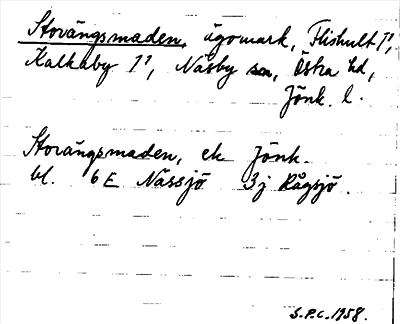 Stovängsmaden, ägomark, Flishult 1¹,
Kalkaby 1¹, Näsby sn, Östra hd,
Jönk. l.
Stovängsmaden, ek Jönk.
bl. 6E Nässjö 3j Rågsjö.
S.P.C. 1958.